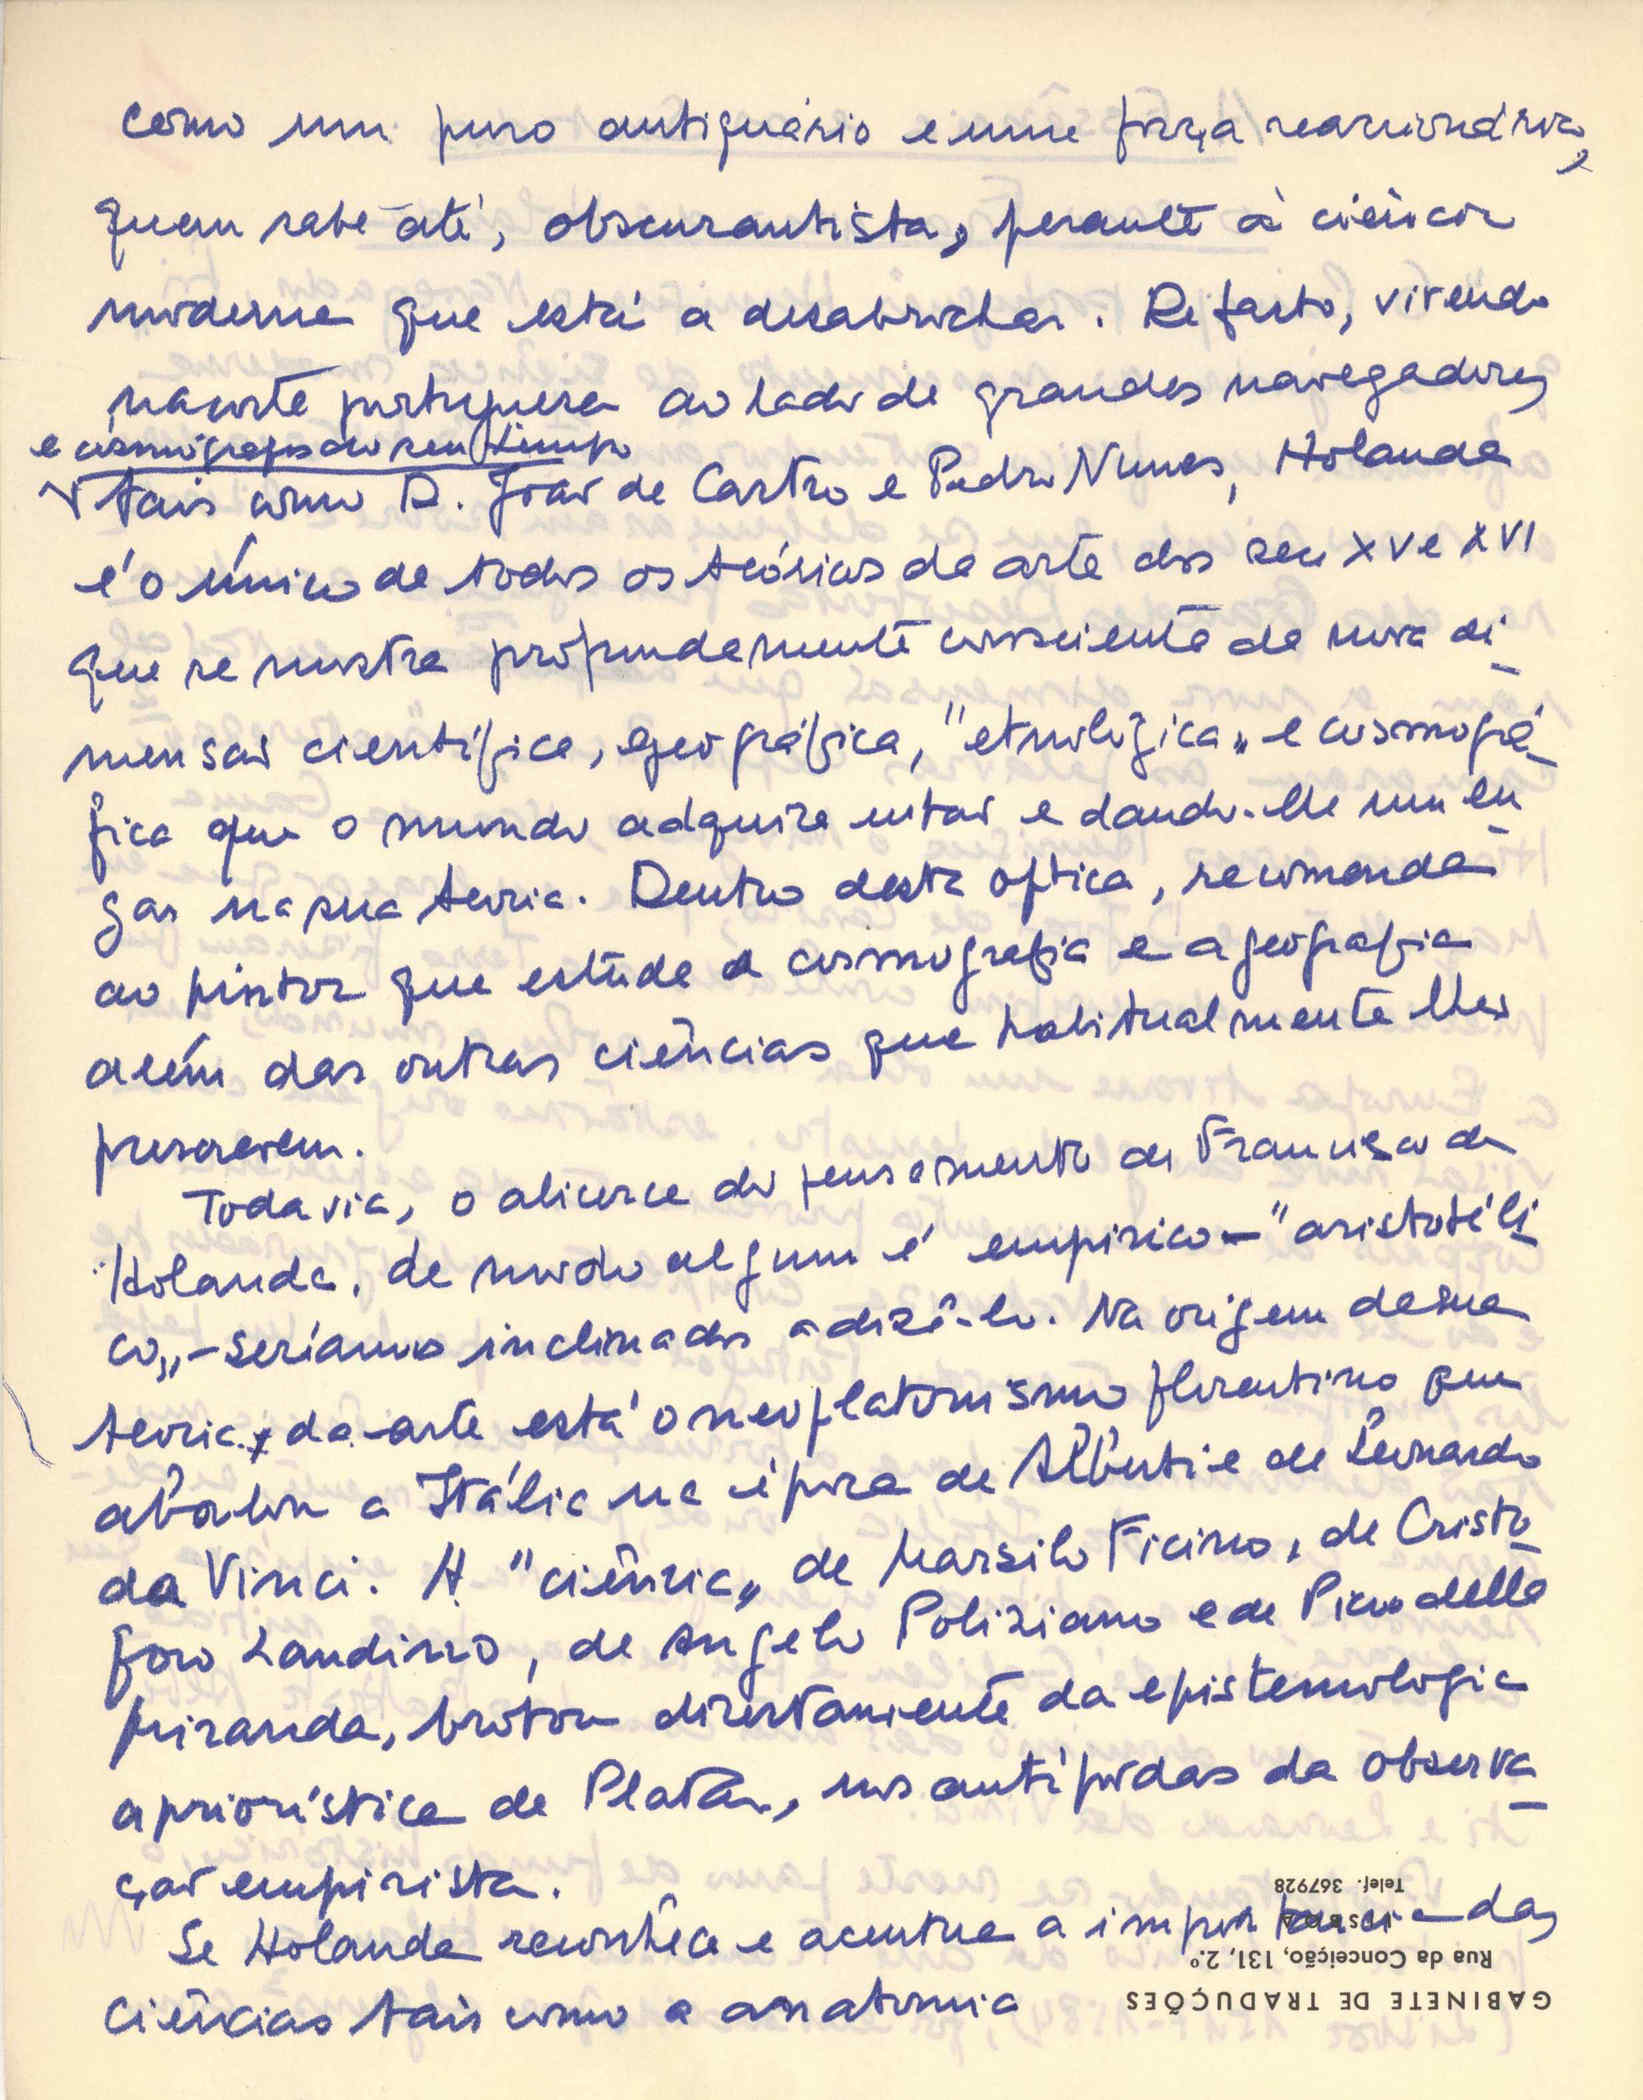 como um puro antiquário e uma força reaccionária, e
quem sabe até, obscurantista, perante a ciência
moderna que está a desabrochar. De facto, vivendo
na corte portuguesa ao lado de grandes navegadores
e cosmógrafos do seu tempo
tais como D. João de Castro e Pedro Nunes, Holanda
é o único de todos os teóricos da arte dos sec XV e XVI
que se mostra profundamente consciente da nova di-
mensão científica, geográfica, "etnológica" e cosmográ-
fica que o mundo adquire então e dando-lhe um lu-
gar na sua teoria. Dentro desta óptica, recomenda
ao pintor que estude a cosmografia e a geografia
além das outras ciências que habitualmente lhes
prescrevem.
Todavia, o alicerce do pensamento de Francisco de
Holanda, de modo algum é empírico – "aristotéli-
co" – seríamos inclinados a dizê-lo. Na origem da sua
teoria da arte está o neoplatonismo florentino que
abalou a Itália na época de Alberti e de Leonardo
da Vinci. A "ciência" de Marsilo Ficino, de Cristo-
foro Landino, de Angelo Poliziano e de Pico della
Miranda, brotou directamente da epistemologia
apriorística de Platão, nos antípodas da observa-
ção empirista.
Se Holanda reconhece e acentua a importancia das
ciências tais como a anatomia
GABINETE DE TRADUÇÕES
Rua da Conceição, 131, 2.º
LISBOA
Telef. 367928